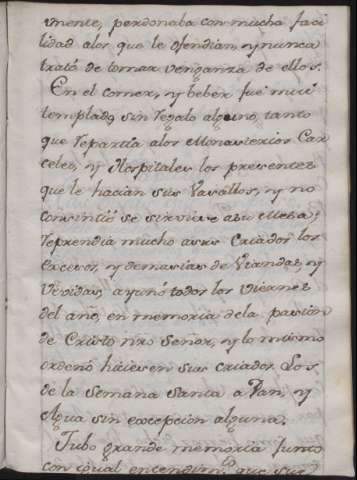 mente, perdonaba con mucha faci
lidad alos que le ofendian, y nunca
trató de tomar venganza de ellos.
En el comer, y beber fue mui
templado, sin regalo alguno, tanto
que repartia alos Monasterios Car
celes, y Hospitales los presentes
que le hacian sus Vasallos, y no
consintió se sirviese asu Mesa;
reprendia mucho asus Criados los
excesos, y demasias de Viandas, y
Vevidas, ayunó todos los Viernes
del año, en memoria dela pasion
de Cristo nro Señor, y lo mismo
ordenó hiciesen sus criados Los
de la Semana Santa a Pan, y
Agua sin excepcion alguna.
Tubo grande memoria junto
con igual entendim.to que sus